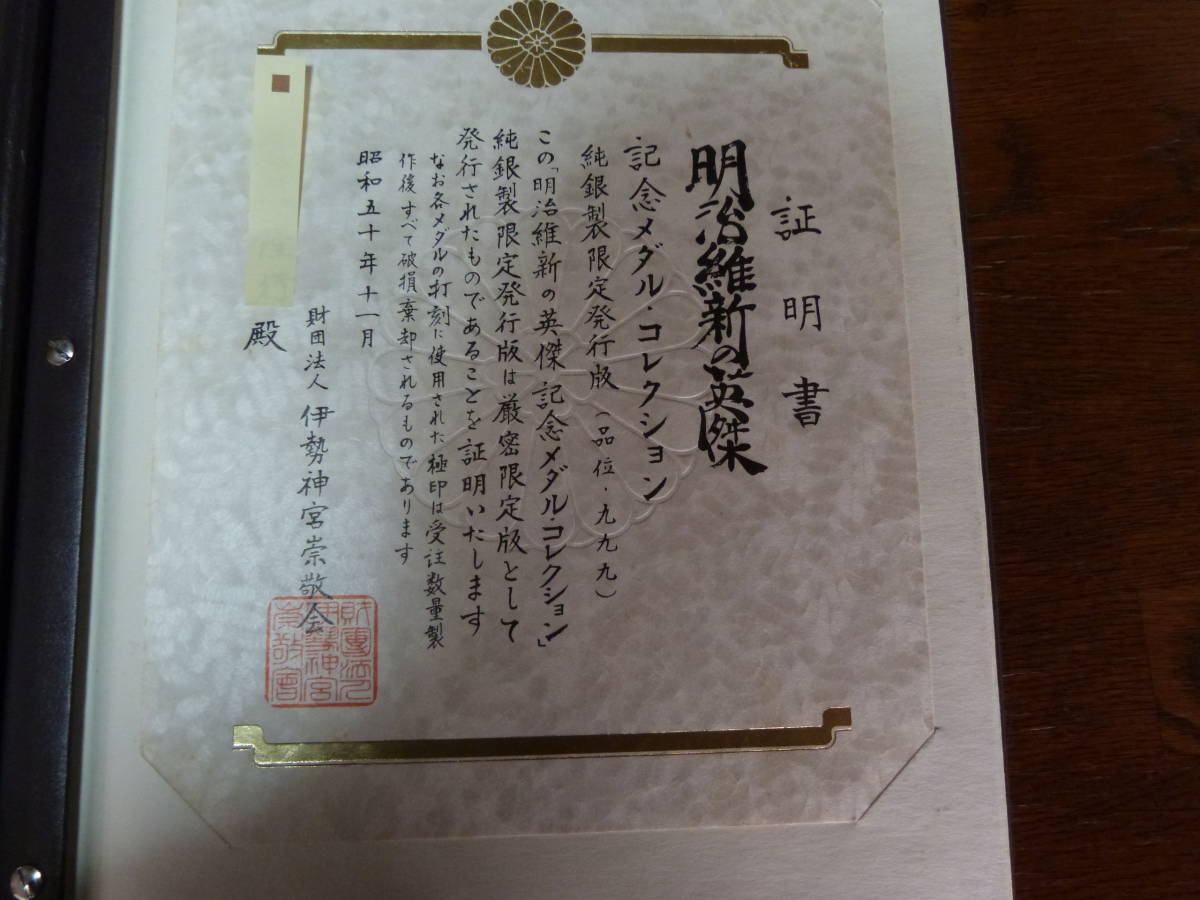 証明書
明治維新の英傑
記念メダル・コレクション
純銀製限定発行版（品位・九九九）
この「明治維新の英傑 記念メダル・コレクション」
純銀製限定発行版は厳密限定版として
発行されたものであることを証明いたします
なお各メダルの打刻に使用された極印は受注数量製
作後すべて破損棄却されるものであります
昭和五十年十一月
財団法人 伊勢神宮崇敬会
財團法人
伊勢神宮
崇敬會
殿